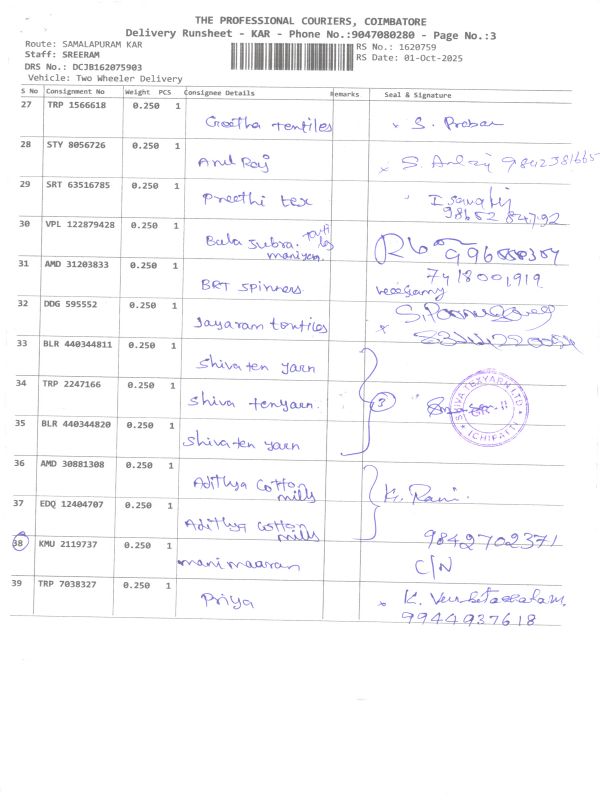 THE PROFESSIONAL COURIERS, COIMBATORE
Delivery Runsheet - KAR - Phone No.:9047080280 - Page No.:3
Route: SAMALAPURAM KAR
RS No.: 1620759
Staff: SREERAM
RS Date: 01-Oct-2025
DRS No.: DCJB162075903
Vehicle: Two Wheeler Delivery
S No Consignment No Weight PCS Consignee Details Remarks Seal & Signature
27 TRP 1566618 0.250 1 Geetha textiles x S. Praban
28 STY 8056726 0.250 1 Anil Raj x 9842381665
29 SRT 63516785 0.250 1 Preethi tex
98652 84792
30 VPL 122879428 0.250 1 Bala subra. maniyan.
31 AMD 31203833 0.250 1 BRT spinners 7418001919
32 DDG 595552 0.250 1 Jayaram textiles x
33 BLR 440344811 0.250 1 Shiva tex yarn
34 TRP 2247166 0.250 1 Shiva texyarn. 3
SHIVA TEXYARN LTD ICHIPATTI
35 BLR 440344820 0.250 1 Shiva tex yarn
36 AMD 30881308 0.250 1 Adithya Cotton mills K. Rani.
37 EDQ 12404707 0.250 1 Adithya cotton mills 9842702371
38 KMU 2119737 0.250 1 manimaaran C/N
39 TRP 7038327 0.250 1 Priya K. Venketachalam.
9944937618